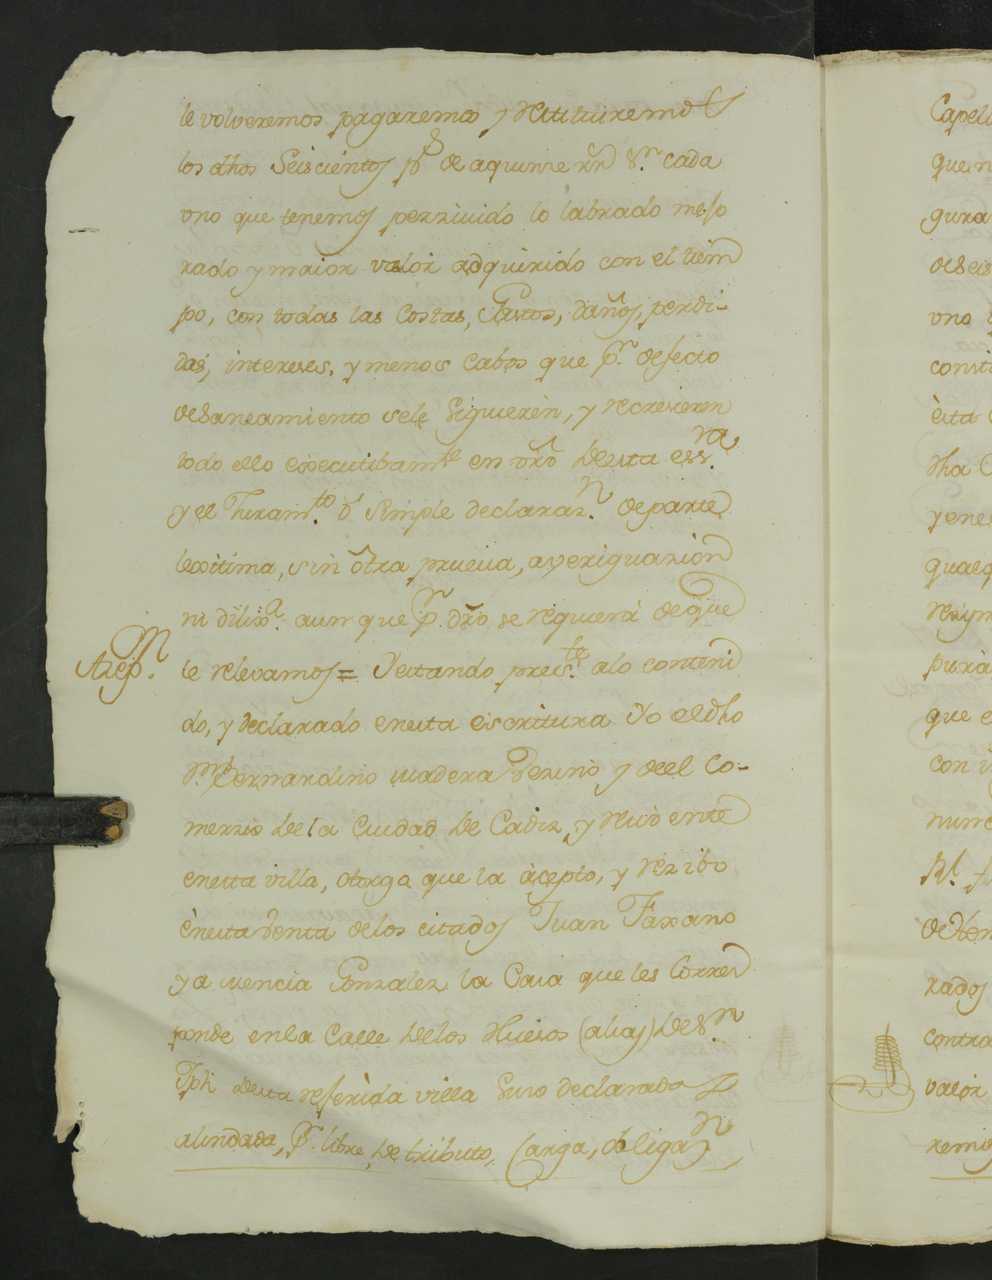 le volveremos pagaremos y restituiremos
los dhos Seiscientos ps de aquinze rrn vn cada
uno que tenemos perzivido lo labrado mejo
rado y maior valor adquirido con el tiem
po, con todas las Costas, Gastos, daños, perdi-
das, intereses, y menos cabos que pr defecto
de Saneamiento se le Siguieren, y recrecieren
todo ello executibamte en vrd de esta essra
y el Juramto o Simple declarazn de parte
lexitima, sin otra prueva, averiguazion
ni dilixa aunque pr dro se requiera de que
Azepn. le relevamos = Y estando preste alo conteni
do, y declarado en esta escritura Yo el dho
Dn Bernardino Madera Vezino y de el Co-
merzio de la Ciudad de Cadiz, y residente
en esta villa, otorga que la acepto, y rezibo
en esta Venta de los citados Juan Faxano
y a Mencia Gonzalez la Casa que les Corres
ponde en la Calle de los Huesos (alias) de Sn
Jph de esta referida villa Suso declarada
alindada, pr libre de tributo, Carga, obligazn
Capell
que
gura
de Seis
uno
const
esta
dha
y en
que e
con
nunc
rados
contra
valor
remos